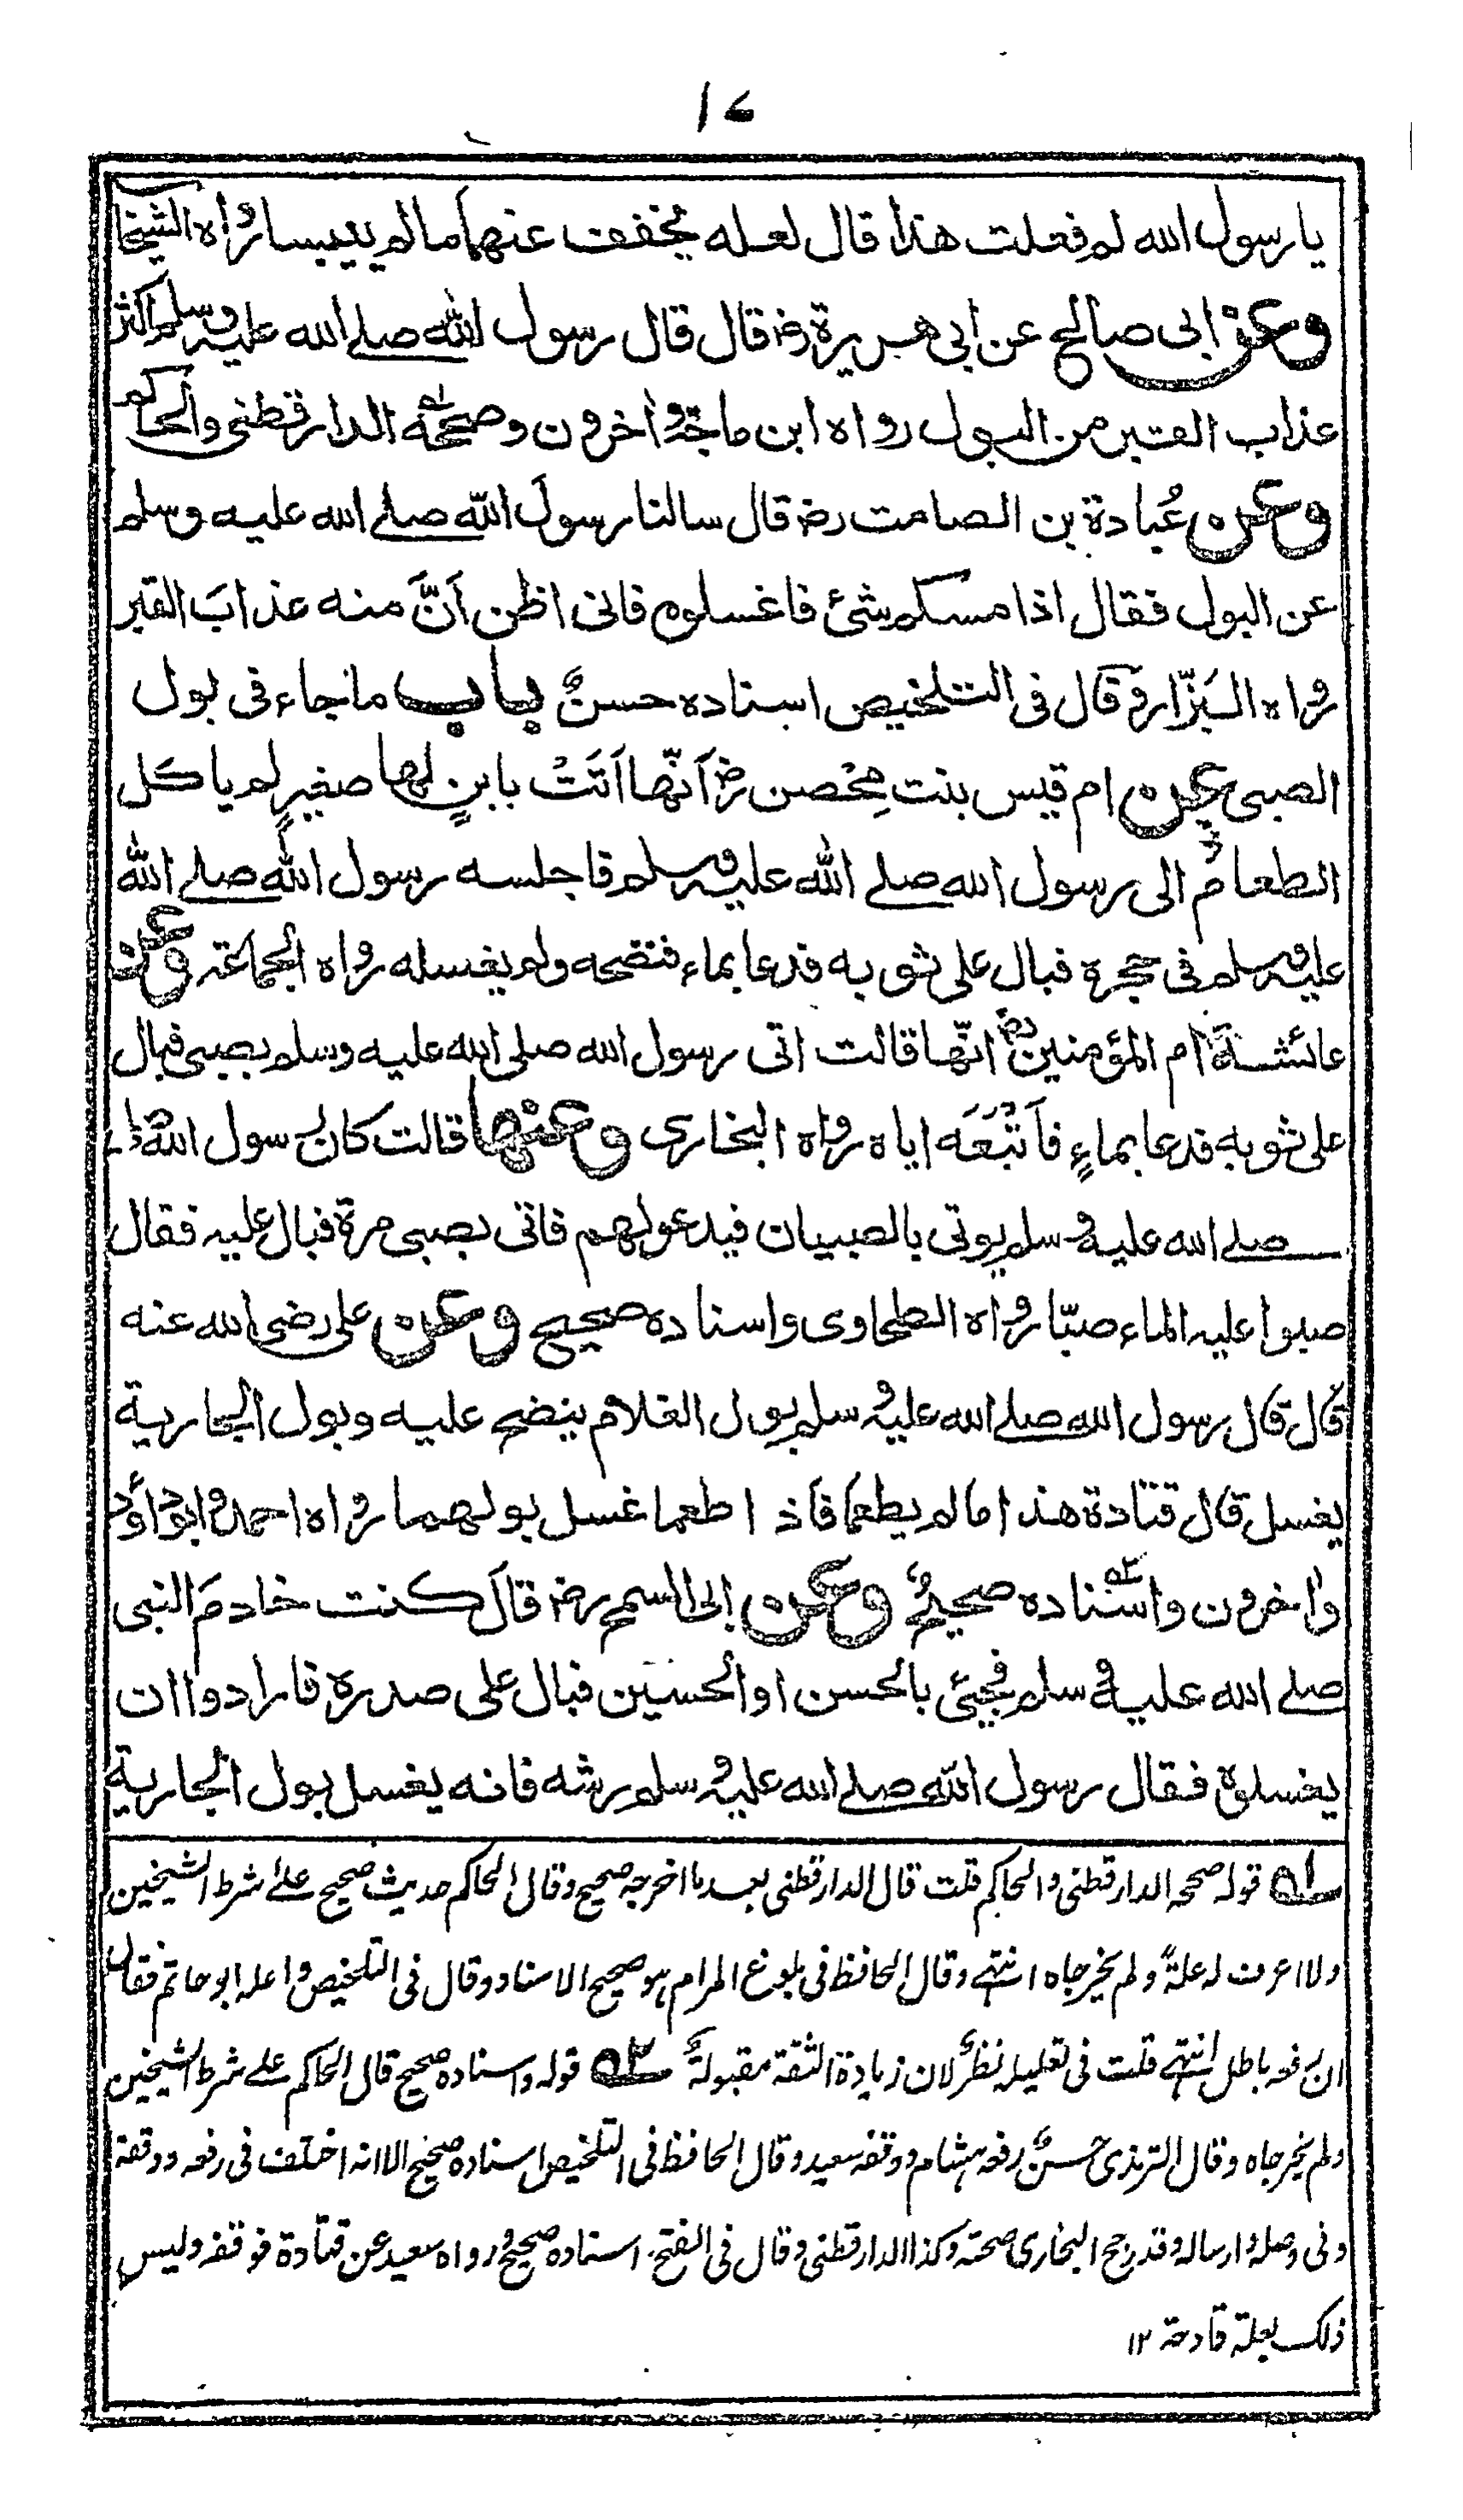 ١٧
يا رسول الله لم فعلت هذا قال لعله يخفف عنهما ما لم ييبسا رواه الشيخان
وعن ابى صالح عن ابى هريرة رض قال قال رسول الله صلے الله عليه وسلم اكثر
عذاب القبر من البول رواه ابن ماجة واخرون وصححه له الدارقطنى والحاكم
وعن عُبادة بن الصامت رض قال سالنا رسولَ الله صلے الله عليه وسلم
عن البول فقال اذا مسكم شئ فاغسلوه فانى اظن اَنَّ منه عذابَ القبر
رواه البَزّار وقال فى التلخيص اسناده حسنٌ باب ما جاء فى بول
الصبى عن ام قيس بنت مِحْصن رض اَنّها اَتَتْ بابنٍ لها صغيرٍ لم ياكل
الطعامَ الى رسول الله صلے الله عليه وسلم فاجلسه رسول الله صلے الله
عليه وسلم فى حجره فبال على ثوبه فدعا بماء فنضحه ولم يغسله رواه الجماعة وعن
عائشة ام المؤمنين رض انّها قالت اتى رسول الله صلى الله عليه وسلم بصبى فبال
على ثوبه فدعا بماءٍ فاَتْبَعَه اياه رواه البخارى وعنها قالت كان رسول الله
صلے الله عليه وسلم يوتى بالصبيان فيدعو لهم فاتى بصبى مرة فبال عليه فقال
صبوا عليه الماء صبّا رواه الطحاوى واسناده صحيح وعن على رضى الله عنه
قال قال رسول الله صلے الله عليه وسلم بول الغلام ينضح عليه وبول الجارية
يغسل قال قتادة هذا ما لم يطعما فاذا طعما غسل بولهما رواه احمد وابو داؤد
واخرون واسناده ٢ه صحيحٌ وعن ابى السمح رض قال كنت خادمَ النبى
صلے الله عليه وسلم فجيئ بالحسن او الحسين فبال على صدره فارادوا ان
يغسلوه فقال رسول الله صلے الله عليه وسلم رشه فانه يغسل بول الجارية
١ه قوله صححه الدارقطنى والحاكم قلت قال الدارقطنى بعد ما اخرجه صحيح وقال الحاكم حديث صحيح علے شرط الشيخين
ولا اعرف له علةً ولم يخرجاه انتهى وقال الحافظ فى بلوغ المرام هو صحيح الاسناد وقال فى التلخيص واعله ابو حاتم فقال
ان رفعه باطل انتهى قلت فى تعليله نظرٌ لان زيادة الثقة مقبولةٌ ٢ه قوله واسناده صحيح قال الحاكم علے شرط الشيخين
ولم يخرجاه وقال الترمذى حسنٌ رفعه هشام ووقفه سعيد وقال الحافظ فى التلخيص اسناده صحيح الا انه اختلف فى رفعه ووقفه
وفى وصله وارساله وقد رجح البخارى صحته وكذا الدارقطنى وقال فى الفتح اسناده صحيح ورواه سعيد عن قتادة فوقفه وليس
ذلك بعلة قادحة ١٢